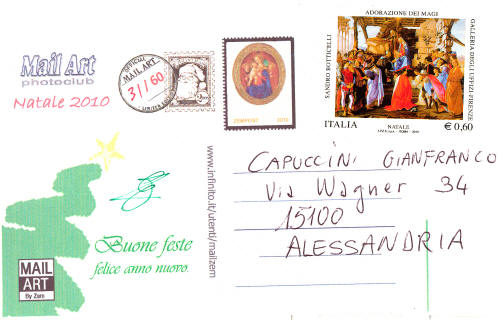 Mail Art
photoclub
Natale 2010
OFFICIAL
MAIL ART
31/60
ZEMPOST 2010
ADORAZIONE DEI MAGI
SANDRO BOTTICELLI
GALLERIA DEGLI UFFIZI-FIRENZE
ITALIA
NATALE
€ 0,60
CAPUCCINI GIANFRANCO
Via Wagner 34
15100
ALESSANDRIA
www.infinito.it/utenti/mailzem
Buone feste
felice anno nuovo.
MAIL
ART
By Zem